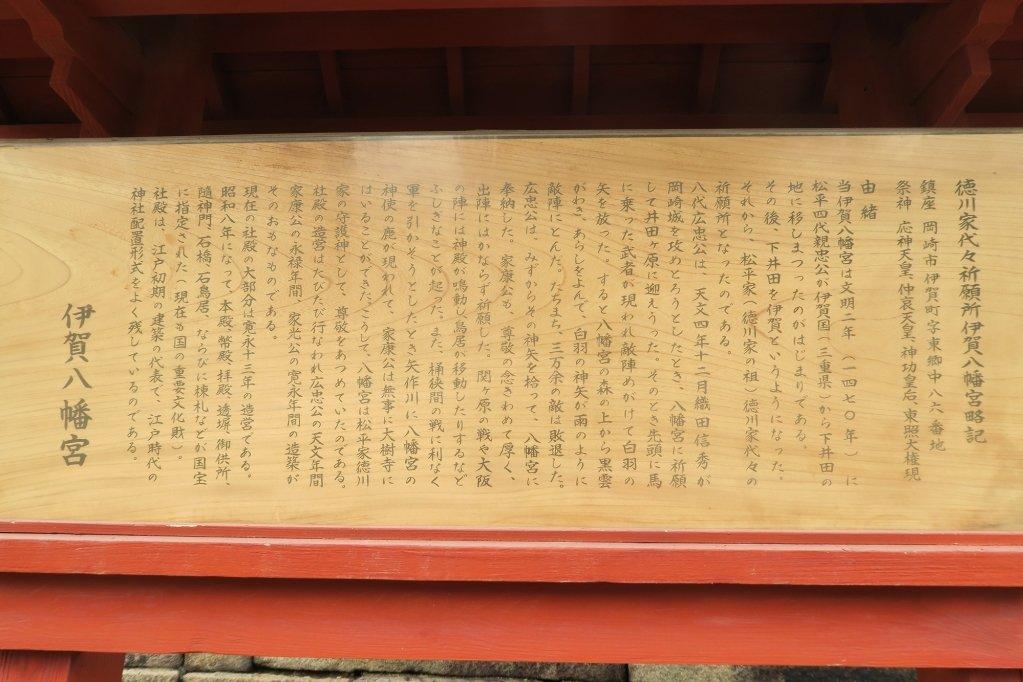 徳川家代々祈願所伊賀八幡宮略記
鎮座　岡崎市伊賀町字東郷中八六番地
祭神　応神天皇、仲哀天皇、神功皇后、東照大権現
由緒
当伊賀八幡宮は文明二年（一四七〇年）に
松平四代親忠公が伊賀国（三重県）から下井田の
地に移しまつったのがはじまりである。
その後、下井田を伊賀というようになった。
それから、松平家（徳川家の祖）徳川家代々の
祈願所となったのである。
八代広忠公は、天文四年十二月織田信秀が
岡崎城を攻めとろうとしたとき、八幡宮に祈願
して井田ヶ原に迎えうった。そのとき先頭に馬
に乗った武者が現われ敵陣めがけて白羽の
矢を放った。すると八幡宮の森の上から黒雲
がわき、あらしをよんで、白羽の神矢が雨のように
敵陣にとんだ。たちまち、三万余の敵は敗退した。
広忠公は、みずからその神矢を拾って、八幡宮に
奉納した。家康公も、尊敬の念きわめて厚く、
出陣にはかならず祈願した。関ヶ原の戦や大阪
の陣には神殿が鳴動し、鳥居が移動したりするなど
ふしぎなことが起った。また、桶狭間の戦に利なく
軍を引かえそうとしたとき矢作川に八幡宮の
神使の鹿が現われて、家康公は無事に大樹寺に
はいることができた。こうして、八幡宮は松平家徳川
家の守護神として、尊敬をあつめていたのである。
社殿の造営はたびたび行なわれ広忠公の天文年間
家康公の永禄年間、家光公の寛永年間の造築が
そのおもなものである。
現在の社殿の大部分は寛永十三年の造営である。
昭和八年になって、本殿、幣殿、拝殿、透塀、御供所、
随神門、石橋、石鳥居、ならびに棟札などが国宝
に指定された（現在も国の重要文化財）。
社殿は、江戸初期の建築の代表で、江戸時代の
神社配置形式をよく残しているのである。
伊賀八幡宮